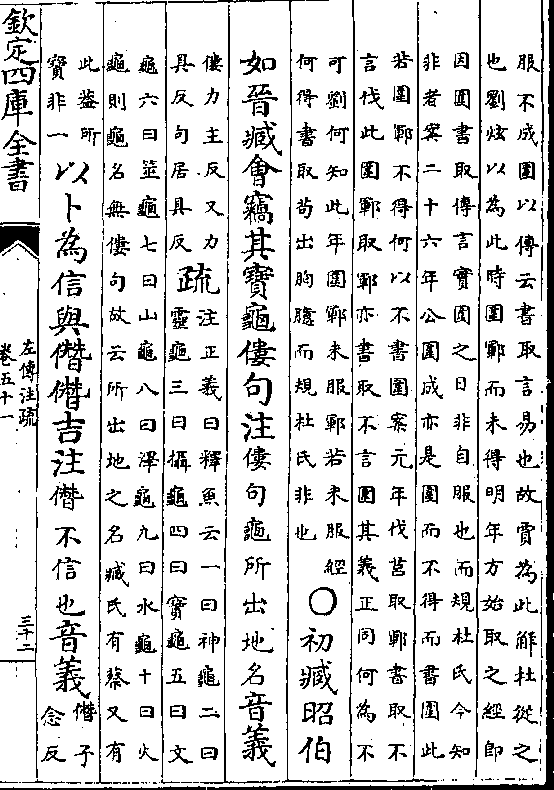 服不成圍以傳云書取言易也故賈為此解杜從之
也劉炫以為此時圍鄆而未得明年方始取之經即
因圍書取傳言實圍之日非自服也而規杜氏今知
非者案二十六年公圍成亦是圍而不得而書圍此
若圍鄆不得何以不書圍案元年伐莒取鄆書取不
言伐此圍鄆取鄆亦書取不言圍其義正同何為不
可劉何知此年圍鄆未服鄆若未服經
何得書取苟出胸臆而規杜氏非也
○初臧昭伯
如晉臧會竊其寶龜僂句注僂句龜所出地名音義
僂力主反又力
具反句居具反
疏
注正義曰釋魚云一曰神龜二曰
靈龜三曰攝龜四曰寶龜五曰文
龜六曰筮龜七曰山龜八曰澤龜九曰水龜十曰火
龜則龜名無僂句故云所出地之名臧氏有蔡又有
此蓋所
寶非一
以卜為信與僭僭吉注僭不信也音義
僭子
念反
欽定四庫全書
左傳注疏
卷五十一
三十二